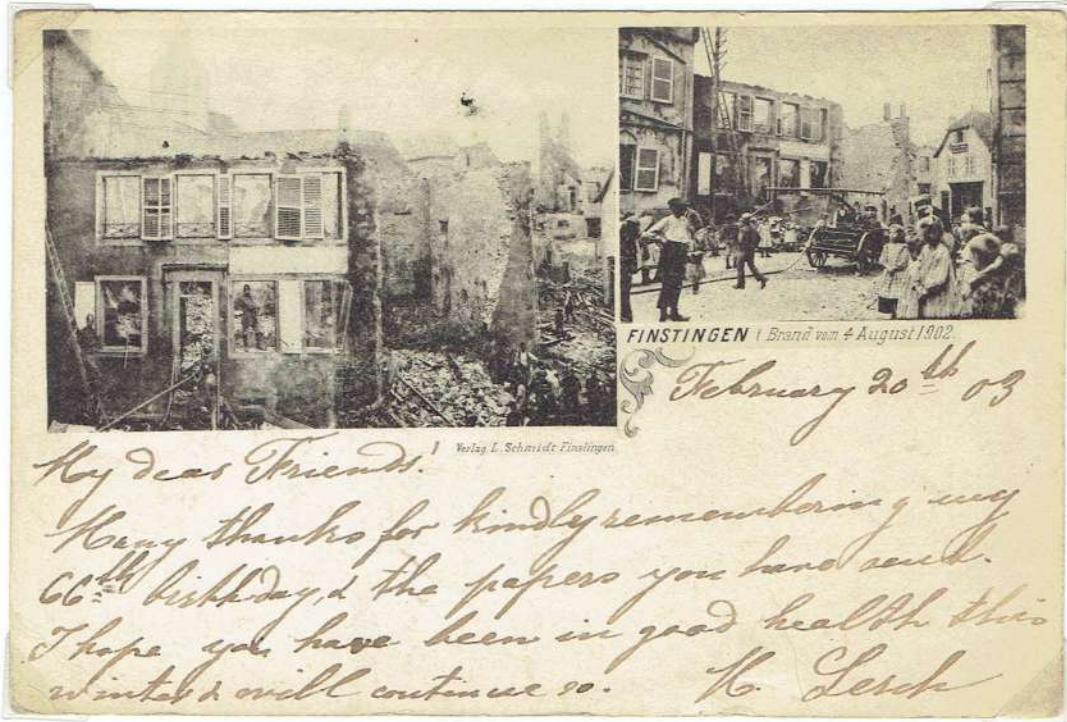 FINSTINGEN | Brand vom 4 August 1902.
February 20th 03
1 Verlag L. Schmidt Finstingen
My dear Friends.
Many thanks for kindly remembering my
66th birthday, & the papers you have send.
I hope you have been in good health this
winter & will continue so. H. Lerch